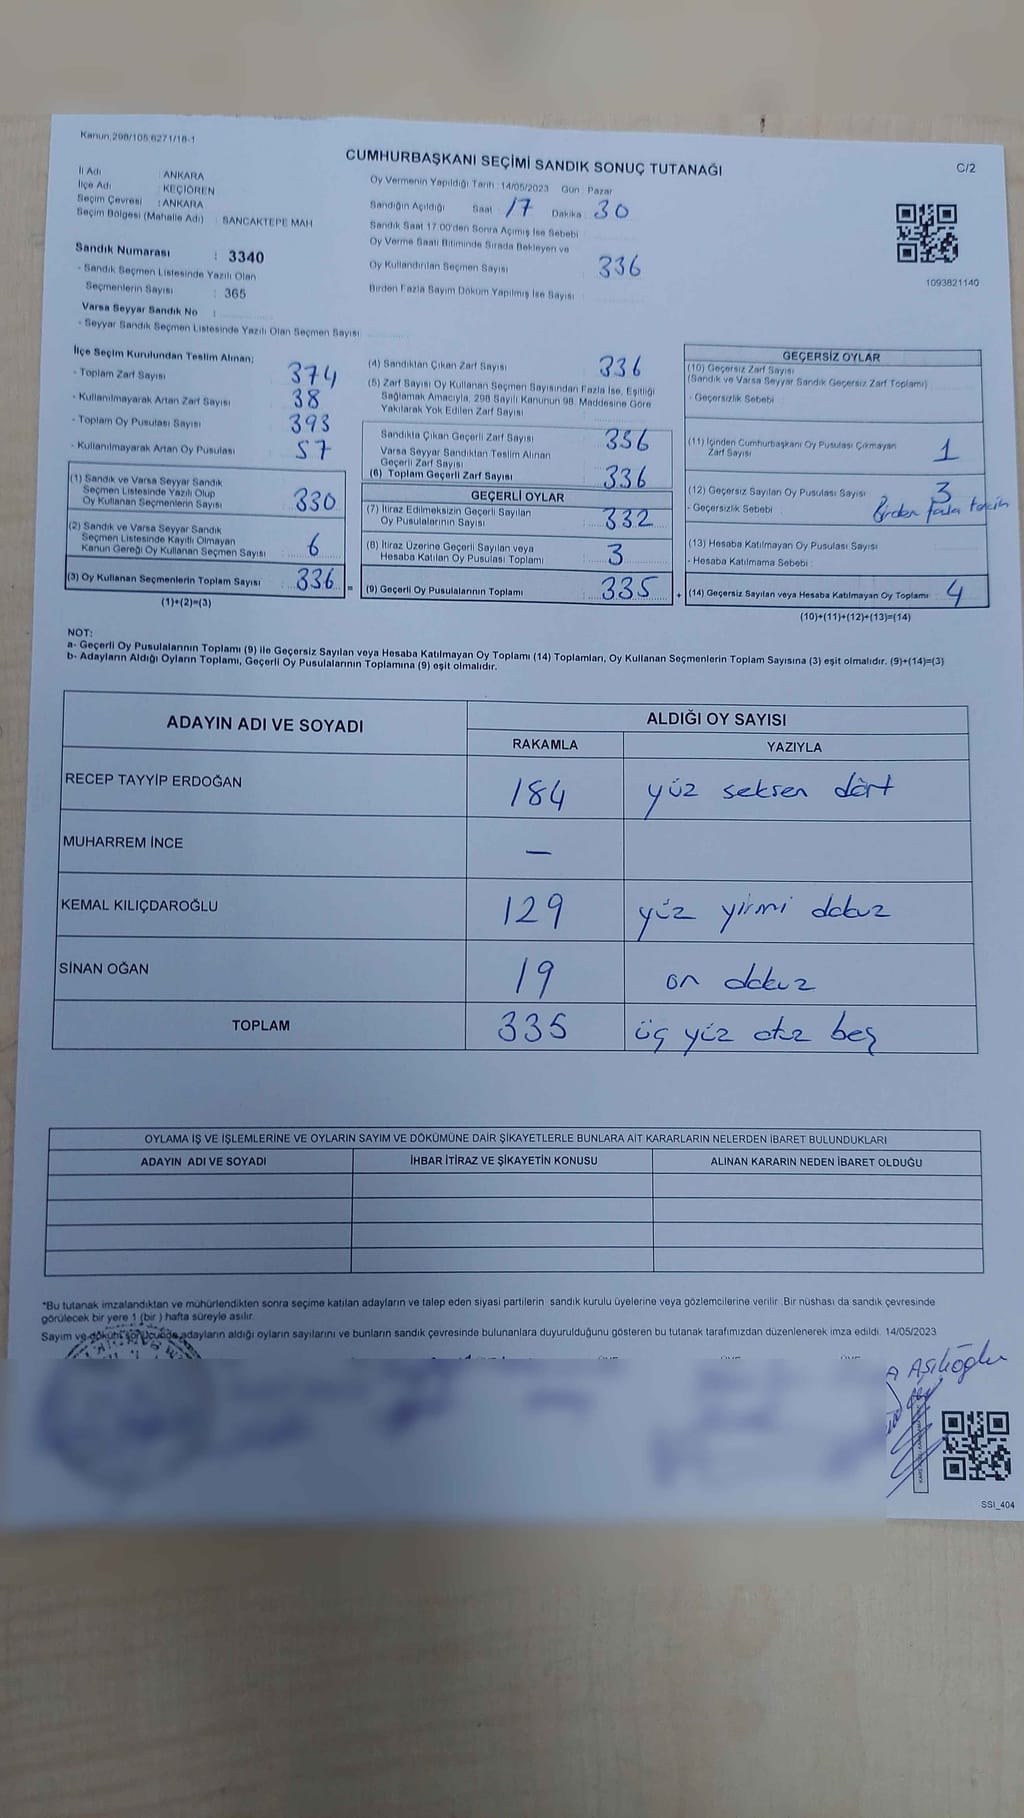 Kanun:298/105;6271/18-1
CUMHURBAŞKANI SEÇİMİ SANDIK SONUÇ TUTANAĞI
C/2
İl Adı : ANKARA
İlçe Adı : KEÇİÖREN
Seçim Çevresi : ANKARA
Seçim Bölgesi (Mahalle Adı) : SANCAKTEPE MAH
Oy Vermenin Yapıldığı Tarih : 14/05/2023 Gün : Pazar
Sandığın Açıldığı Saat 17 Dakika : 30
Sandık Saat 17:00'den Sonra Açımış İse Sebebi
Oy Verme Saati Bitiminde Sırada Bekleyen ve
Oy Kullandırılan Seçmen Sayısı 336
Birden Fazla Sayım Döküm Yapılmış İse Sayısı :
1093821140
Sandık Numarası : 3340
- Sandık Seçmen Listesinde Yazılı Olan
Seçmenlerin Sayısı : 365
Varsa Seyyar Sandık No :
- Seyyar Sandık Seçmen Listesinde Yazılı Olan Seçmen Sayısı
İlçe Seçim Kurulundan Teslim Alınan;
- Toplam Zarf Sayısı 374
- Kullanılmayarak Artan Zarf Sayısı 38
- Toplam Oy Pusulası Sayısı 393
- Kullanılmayarak Artan Oy Pusulası 57
(1) Sandık ve Varsa Seyyar Sandık
Seçmen Listesinde Yazılı Olup
Oy Kullanan Seçmenlerin Sayısı 330
(2) Sandık ve Varsa Seyyar Sandık
Seçmen Listesinde Kayıtlı Olmayan
Kanun Gereği Oy Kullanan Seçmen Sayısı : 6
(3) Oy Kullanan Seçmenlerin Toplam Sayısı : 336 =
(1)+(2)=(3)
(4) Sandıktan Çıkan Zarf Sayısı : 336
(5) Zarf Sayısı Oy Kullanan Seçmen Sayısından Fazla İse, Eşitliği
Sağlamak Amacıyla, 298 Sayılı Kanunun 98. Maddesine Göre
Yakılarak Yok Edilen Zarf Sayısı
Sandıkta Çıkan Geçerli Zarf Sayısı 356
Varsa Seyyar Sandıktan Teslim Alınan
Geçerli Zarf Sayısı
(6) Toplam Geçerli Zarf Sayısı 336
GEÇERLİ OYLAR
(7) İtiraz Edilmeksizin Geçerli Sayılan
Oy Pusulalarının Sayısı : 332
(8) İtiraz Üzerine Geçerli Sayılan veya
Hesaba Katılan Oy Pusulası Toplamı : 3
(9) Geçerli Oy Pusulalarının Toplamı : 335 +
GEÇERSİZ OYLAR
(10) Geçersiz Zarf Sayısı
(Sandık ve Varsa Seyyar Sandık Geçersiz Zarf Toplamı)
- Geçersizlik Sebebi
(11) İçinden Cumhurbaşkanı Oy Pusulası Çıkmayan
Zarf Sayısı 1
(12) Geçersiz Sayılan Oy Pusulası Sayısı 3
- Geçersizlik Sebebi : Birden fazla tercih
(13) Hesaba Katılmayan Oy Pusulası Sayısı
- Hesaba Katılmama Sebebi :
(14) Geçersiz Sayılan veya Hesaba Katılmayan Oy Toplamı : 4
(10)+(11)+(12)+(13)=(14)
NOT:
a- Geçerli Oy Pusulalarının Toplamı (9) ile Geçersiz Sayılan veya Hesaba Katılmayan Oy Toplamı (14) Toplamları, Oy Kullanan Seçmenlerin Toplam Sayısına (3) eşit olmalıdır. (9)+(14)=(3)
b- Adayların Aldığı Oyların Toplamı, Geçerli Oy Pusulalarının Toplamına (9) eşit olmalıdır.
ADAYIN ADI VE SOYADI ALDIĞI OY SAYISI
RAKAMLA YAZIYLA
RECEP TAYYİP ERDOĞAN 184 yüz seksen dört
MUHARREM İNCE —
KEMAL KILIÇDAROĞLU 129 yüz yirmi dokuz
SİNAN OĞAN 19 on dokuz
TOPLAM 335 üç yüz otuz beş
OYLAMA İŞ VE İŞLEMLERİNE VE OYLARIN SAYIM VE DÖKÜMÜNE DAİR ŞİKAYETLERLE BUNLARA AİT KARARLARIN NELERDEN İBARET BULUNDUKLARI
ADAYIN ADI VE SOYADI İHBAR İTİRAZ VE ŞİKAYETİN KONUSU ALINAN KARARIN NEDEN İBARET OLDUĞU
*Bu tutanak imzalandıktan ve mühürlendikten sonra seçime katılan adayların ve talep eden siyasi partilerin sandık kurulu üyelerine veya gözlemcilerine verilir. Bir nüshası da sandık çevresinde
görülecek bir yere 1 (bir ) hafta süreyle asılır.
Sayım ve döküm sonucunda adayların aldığı oyların sayılarını ve bunların sandık çevresinde bulunanlara duyurulduğunu gösteren bu tutanak tarafımızdan düzenlenerek imza edildi. 14/05/2023
Aşıkoğlu
SSI_404